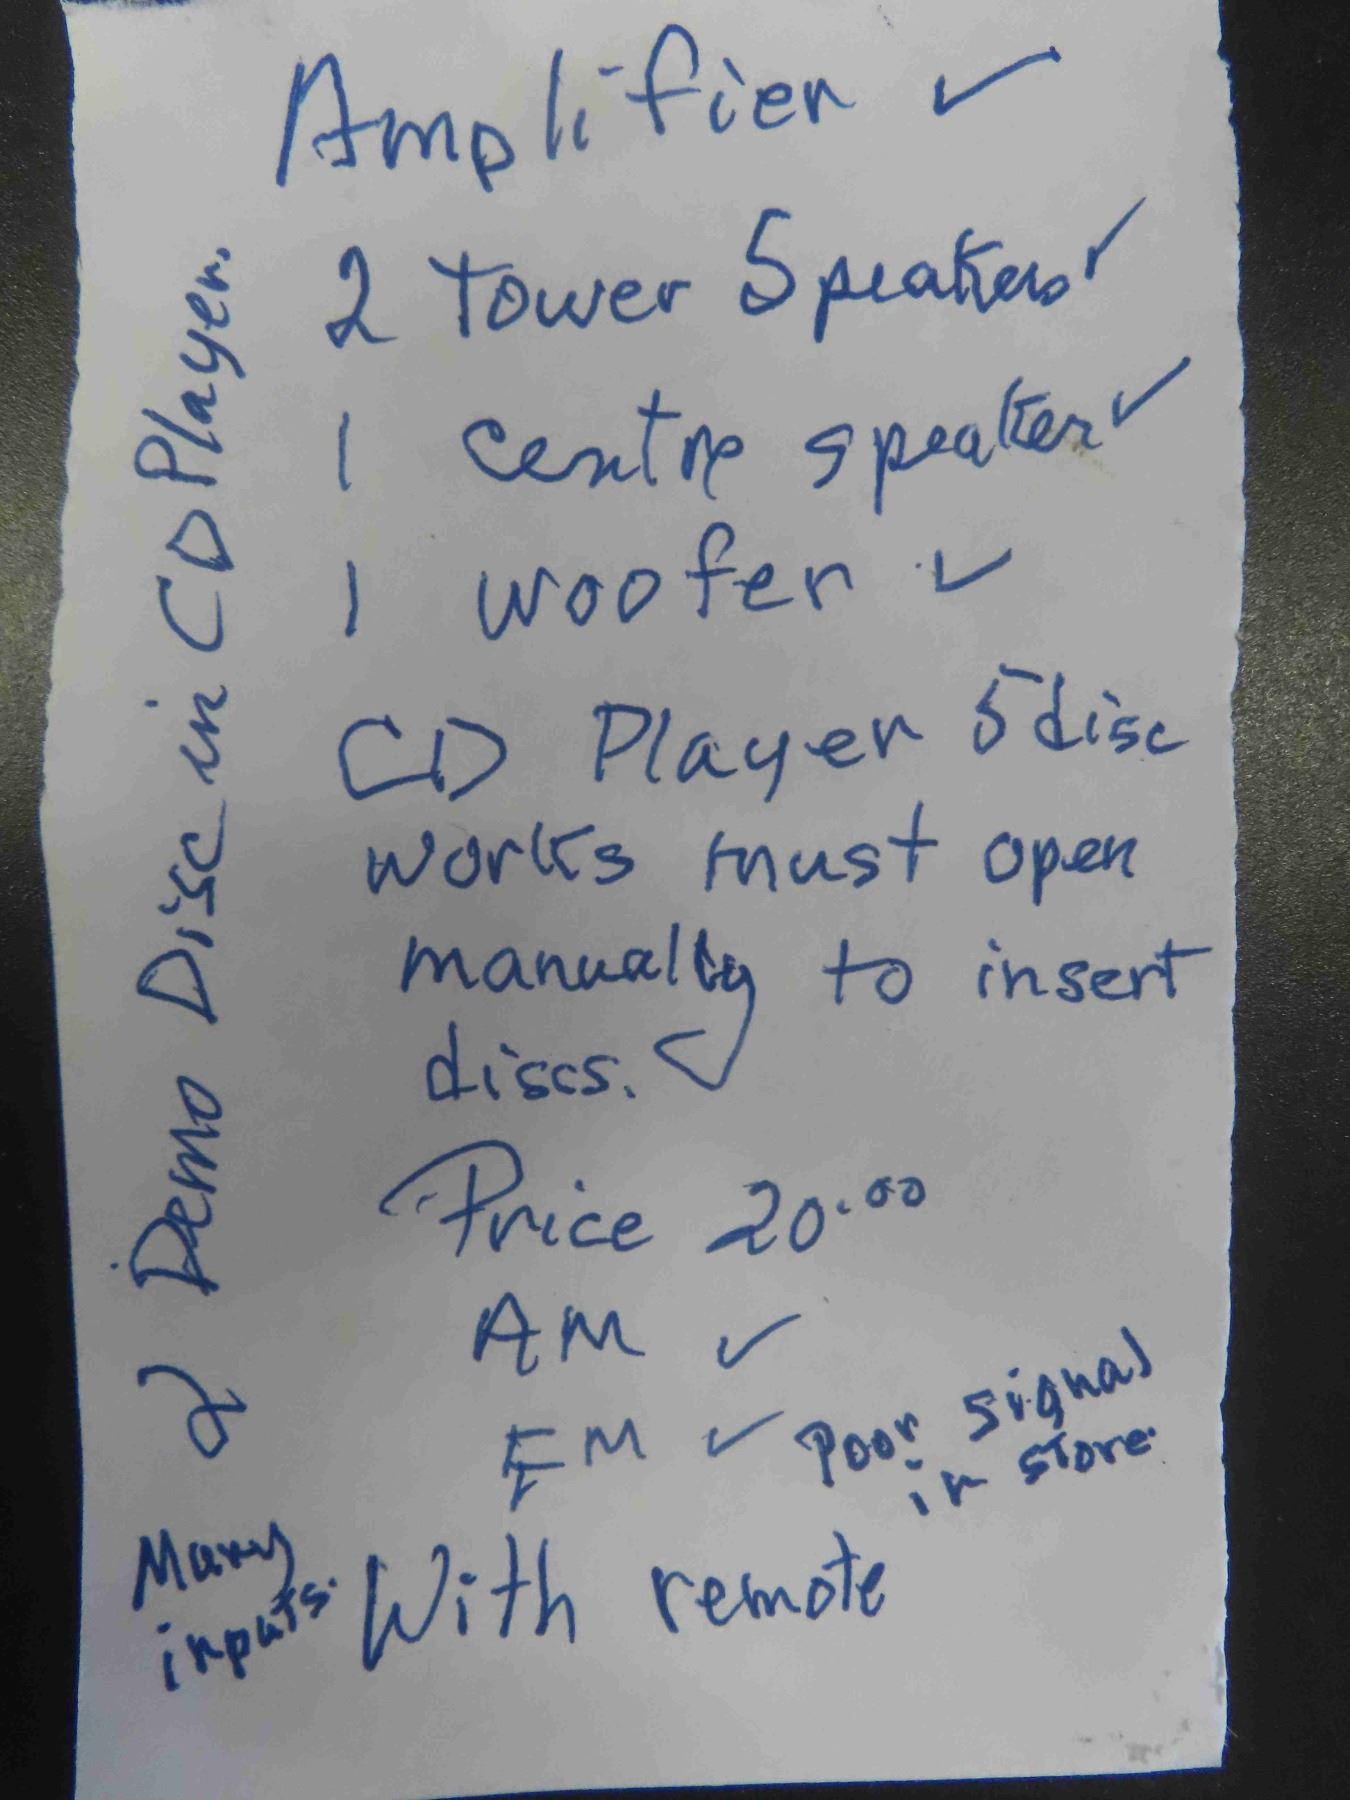 Amplifier ✓
2 Tower Speakers ✓
1 centre speaker ✓
1 woofer ✓
CD Player 5 disc
works must open
manually to insert
discs. ✓
Price 20.00
AM ✓
FM ✓ Poor signal
in store.
With remote
Many
inputs.
2 Demo Disc in CD Player.